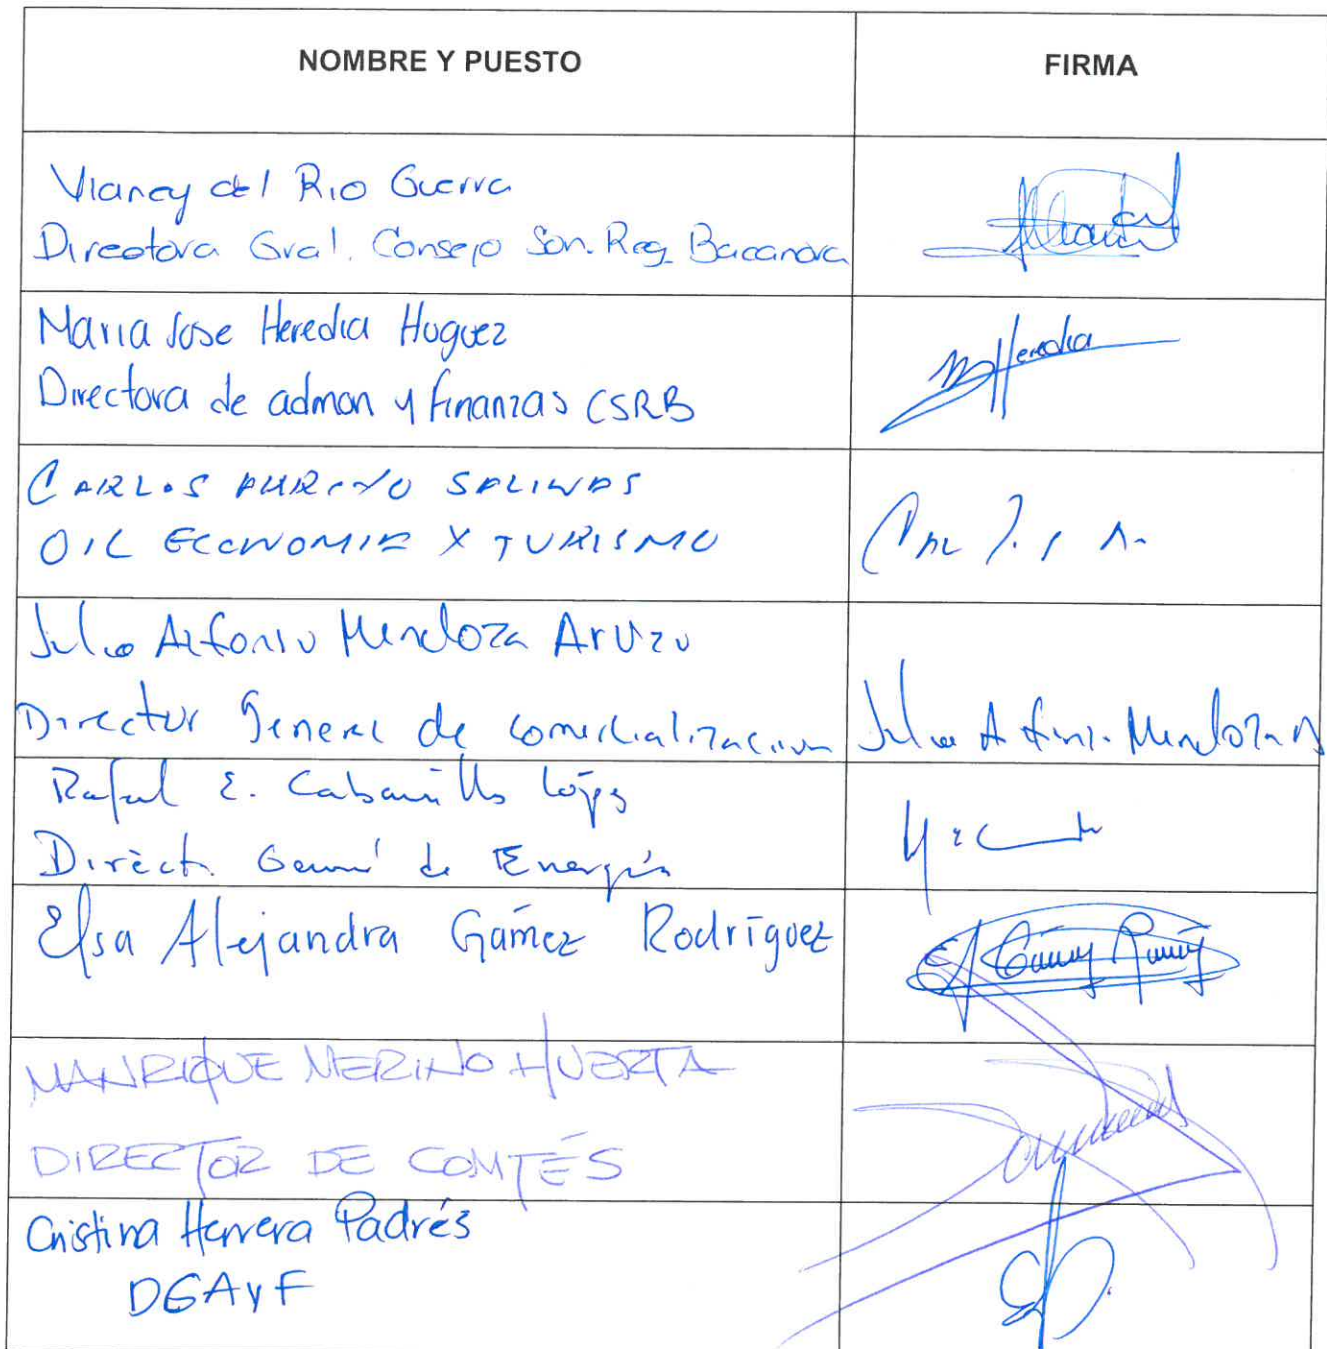 NOMBRE Y PUESTO
FIRMA
Vianey del Rio Guerra
Directora Gral. Consejo Son. Reg. Bacanora
Maria Jose Heredia Huguez
Directora de admon y finanzas CSRB
MHeredia
CARLOS SALINAS
ECONOMIA Y TURISMO
Julio Alfonso Mendoza Aruzu
Director General de comercialización
Julio Alfonso Mendoza A
Rafael E. Cabanillas López
Direct. General de Energía
Elsa Alejandra Gámez Rodríguez
MANRIQUE MERINO HUERTA
DIRECTOR DE COMTÉS
Cristina Herrera Padrés
DGAyF